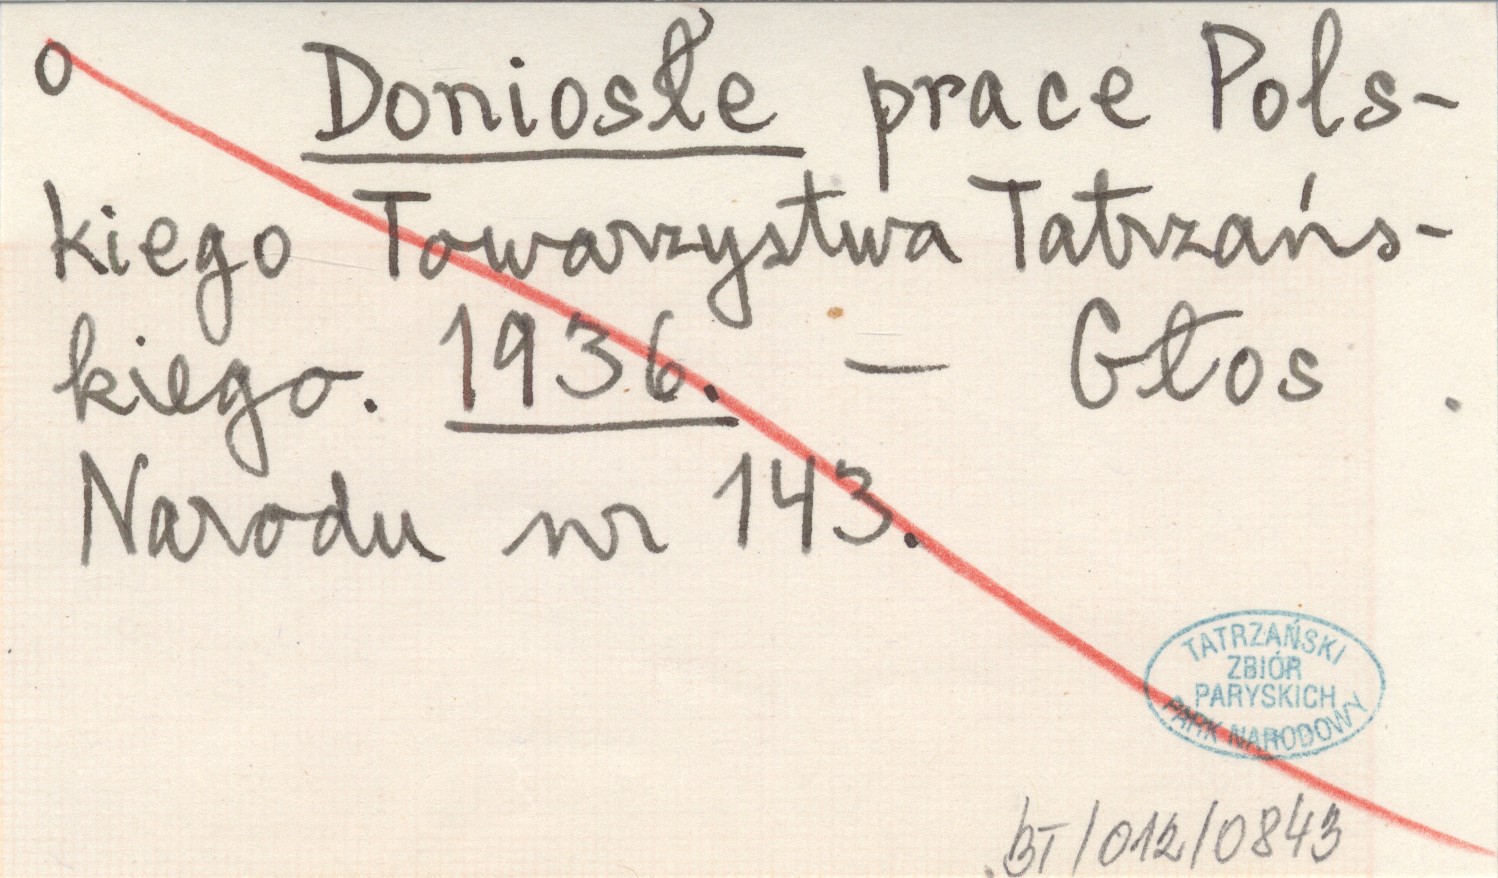 o Doniosłe prace Pols-
kiego Towarzystwa Tatrzańs-
kiego. 1936. — Głos
Narodu nr 143.
TATRZAŃSKI
ZBIÓR
PARYSKICH
PARK NARODOWY
BT/012/0843